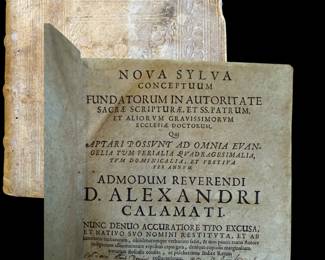 NOVA SYLVA
CONCEPTUUM
FUNDATORUM IN AUTORITATE
SACRÆ SCRIPTURÆ, ET SS. PATRUM,
ET ALIORVM GRAVISSIMORVM
ECCLESIÆ DOCTORUM,
Qui
APTARI POSSVNT AD OMNIA EVAN-
GELIA TVM FERIALIA QVADRAGESIMALIA,
TVM DOMINICALIA, ET FESTIVA
PER ANNUM.
ADMODUM REVERENDI
D. ALEXANDRI
CALAMATI.
NUNC DENUO ACCURATIORE TIPO EXCUSA,
ET NATIVO SVO NOMINI RESTITVTA, ET AB